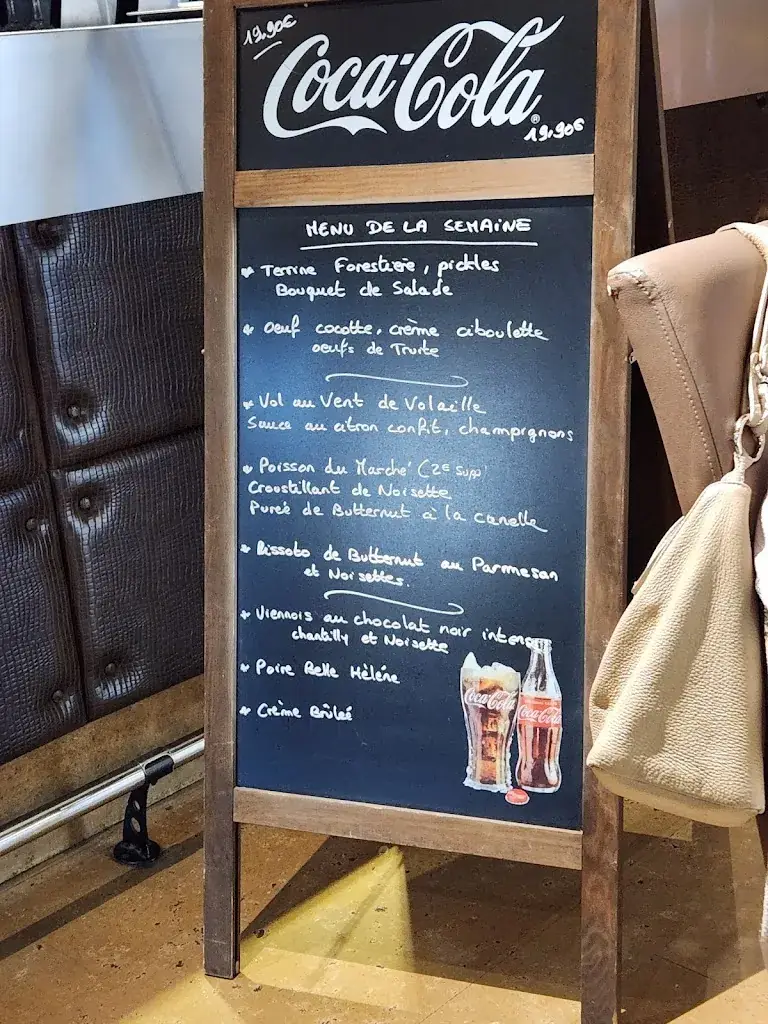 19,90€
Coca-Cola®
19,90€
MENU DE LA SEMAINE
* Terrine Forestière, pickles
Bouquet de Salade
* Oeuf cocotte, crème ciboulette
oeufs de Truite
* Vol au Vent de Volaille
Sauce au citron confit, champignons
* Poisson du Marché (2€ supp)
Croustillant de Noisette
Purée de Butternut à la canelle
* Rissoto de Butternut au Parmesan
et Noisettes.
* Viennois au chocolat noir intense
chantilly et Noisette
* Poire Belle Hélène
* Crème Brûleé
Coca-Cola
Coca-Cola